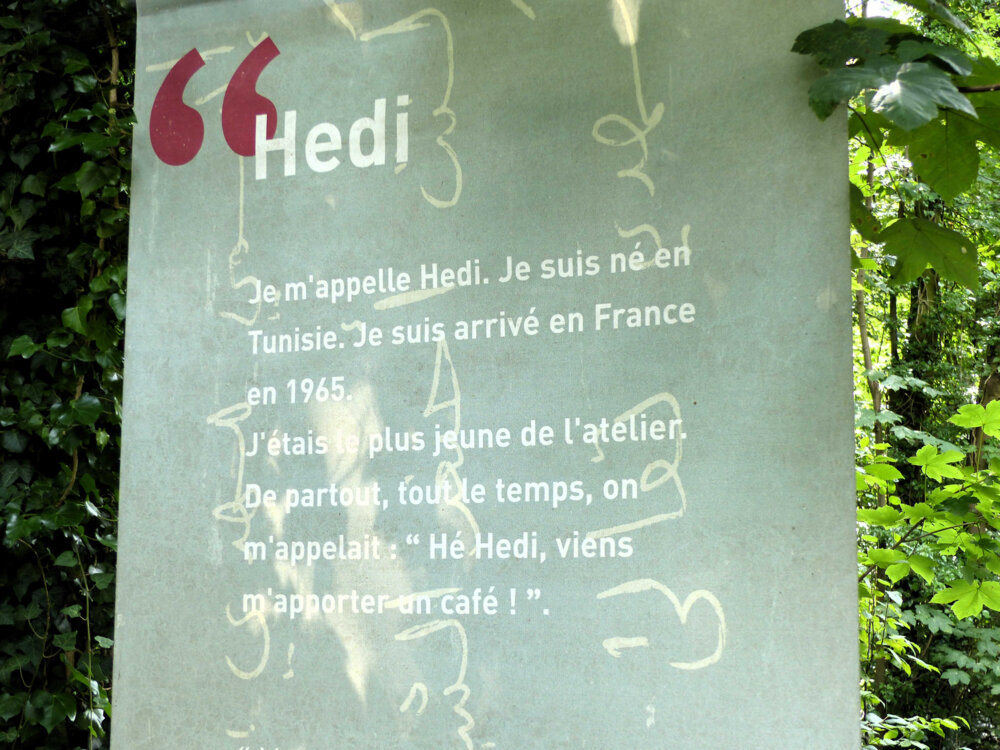 “ Hedi
Je m'appelle Hedi. Je suis né en
Tunisie. Je suis arrivé en France
en 1965.
J'étais le plus jeune de l'atelier.
De partout, tout le temps, on
m'appelait : “ Hé Hedi, viens
m'apporter un café ! ”.